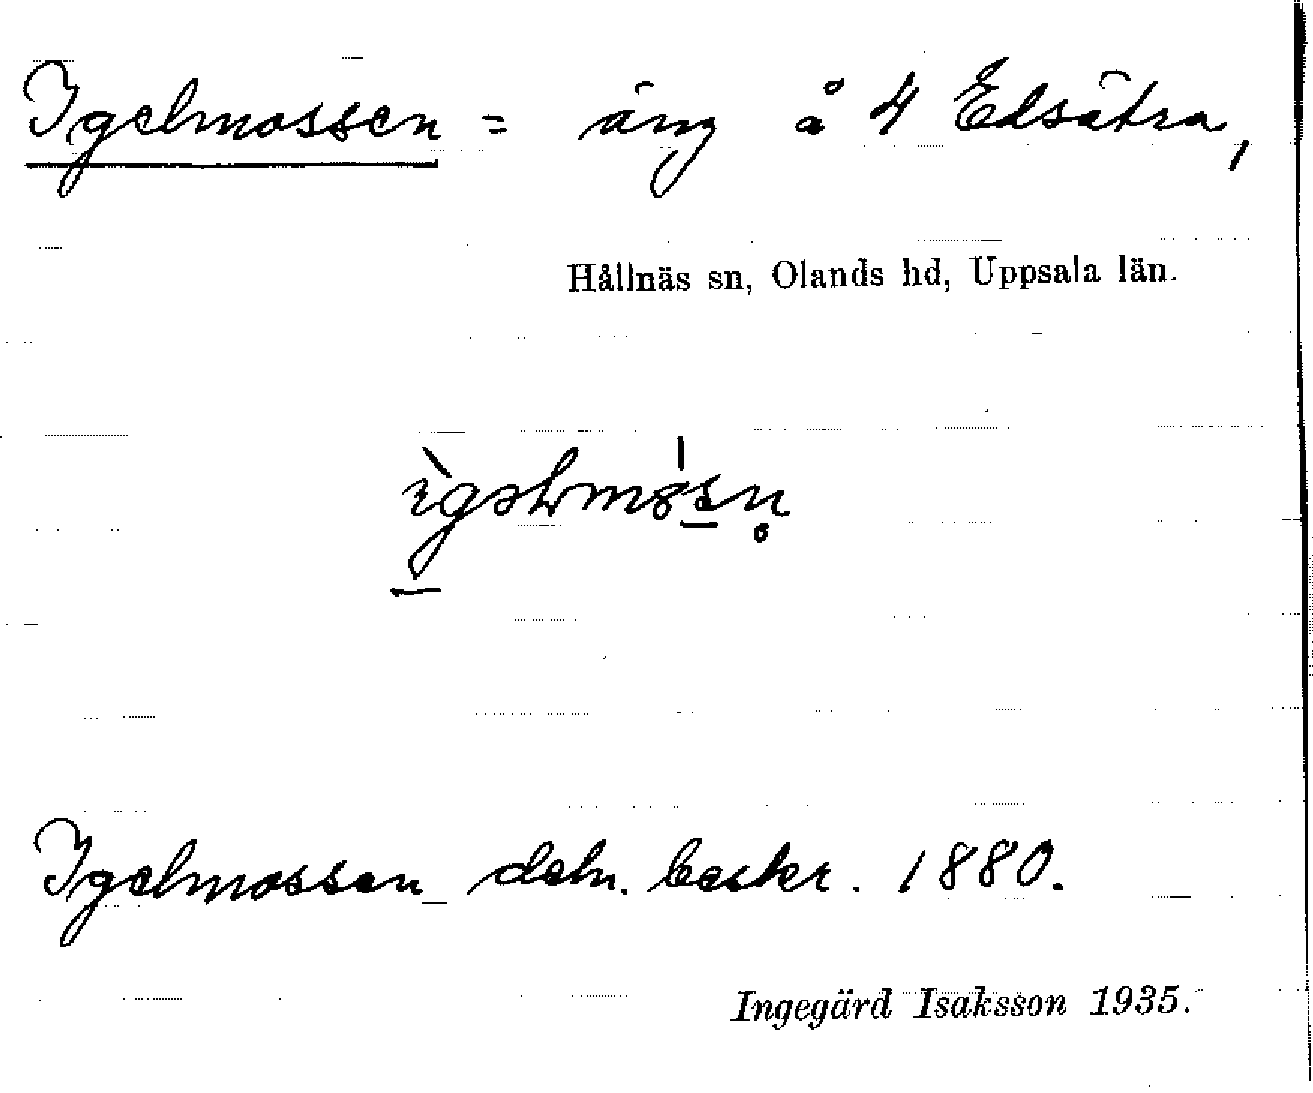 Igelmossen = äng å 4 Edsätra,
Hållnäs sn, Olands hd, Uppsala län.
Igelmossen deln. beskr. 1880.
Ingegärd Isaksson 1935.